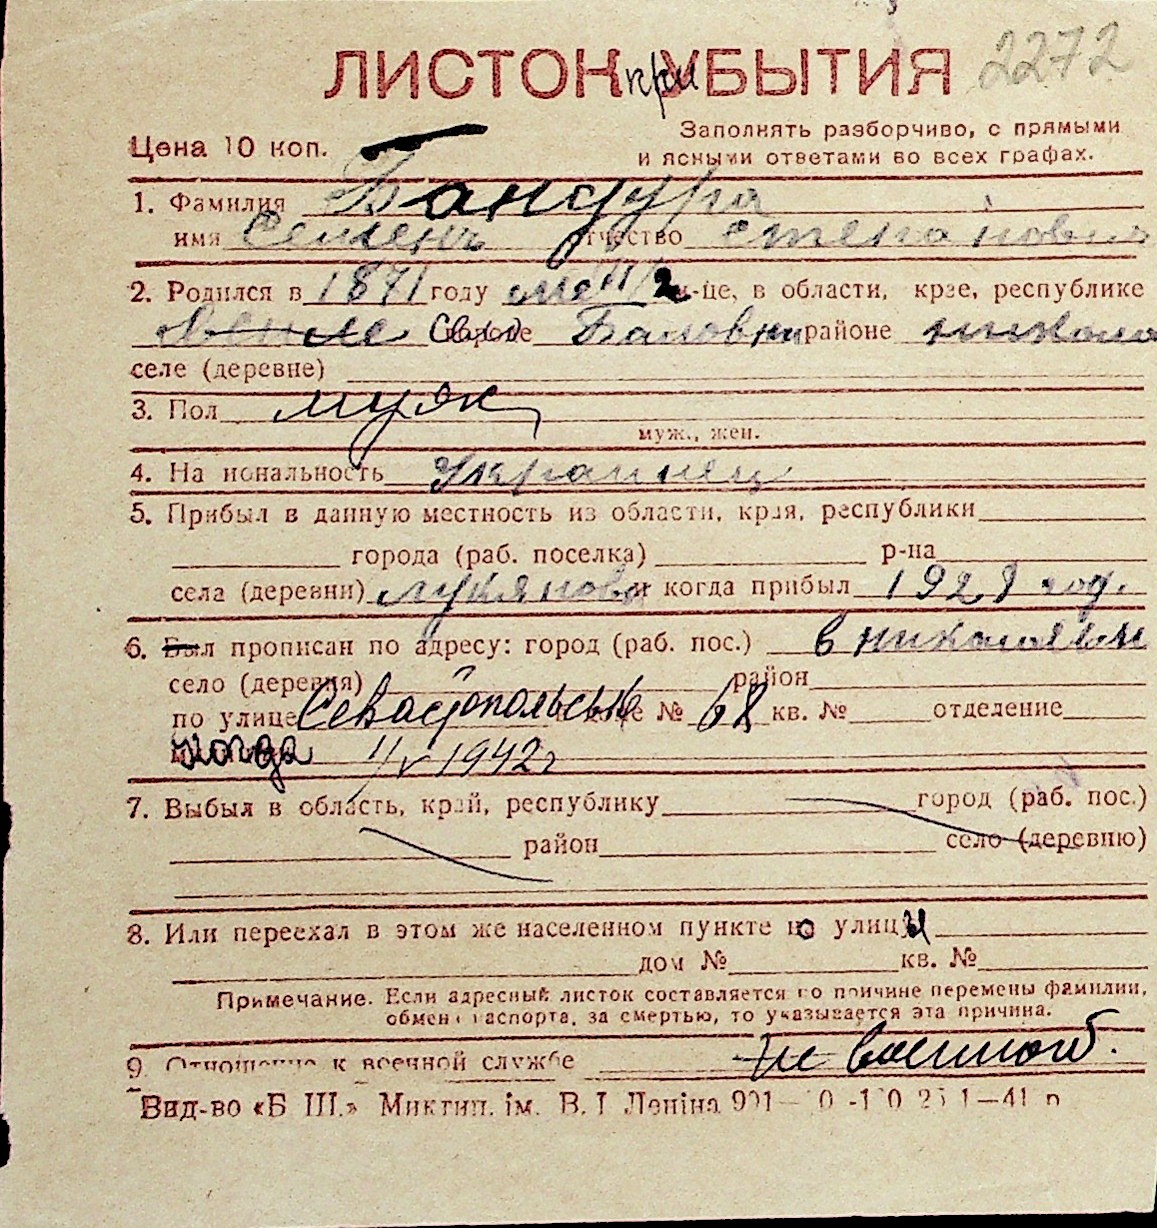 ЛИСТОК при УБЫТИЯ 2272
Цена 10 коп.
Заполнять разборчиво, с прямыми
и ясными ответами во всех графах.
1. Фамилия Бандура
имя Семен отчество Степанович
2. Родился в 1871 году м-це, в области, крае, республике
село городе районе
селе (деревне)
3. Пол муж
муж., жен.
4. Национальность Украинец
5. Прибыл в данную местность из области, края, республики
города (раб. поселка) р-на
села (деревни) и когда прибыл 1928 год.
6. Был прописан по адресу: город (раб. пос.) в
село (деревня) район
по улице доме № 68 кв. № отделение
когда 1/V 1942 г
7. Выбыл в область, край, республику город (раб. пос.)
район село (деревню)
8. Или переехал в этом же населенном пункте по улицы
дом № кв. №
Примечание. Если адресный листок составляется по причине перемены фамилии,
обмена паспорта, за смертью, то указывается эта причина.
9. Отношение к военной службе Не военнооб.
Вид-во «Б Ш.» Миктип. ім. В. І Леніна